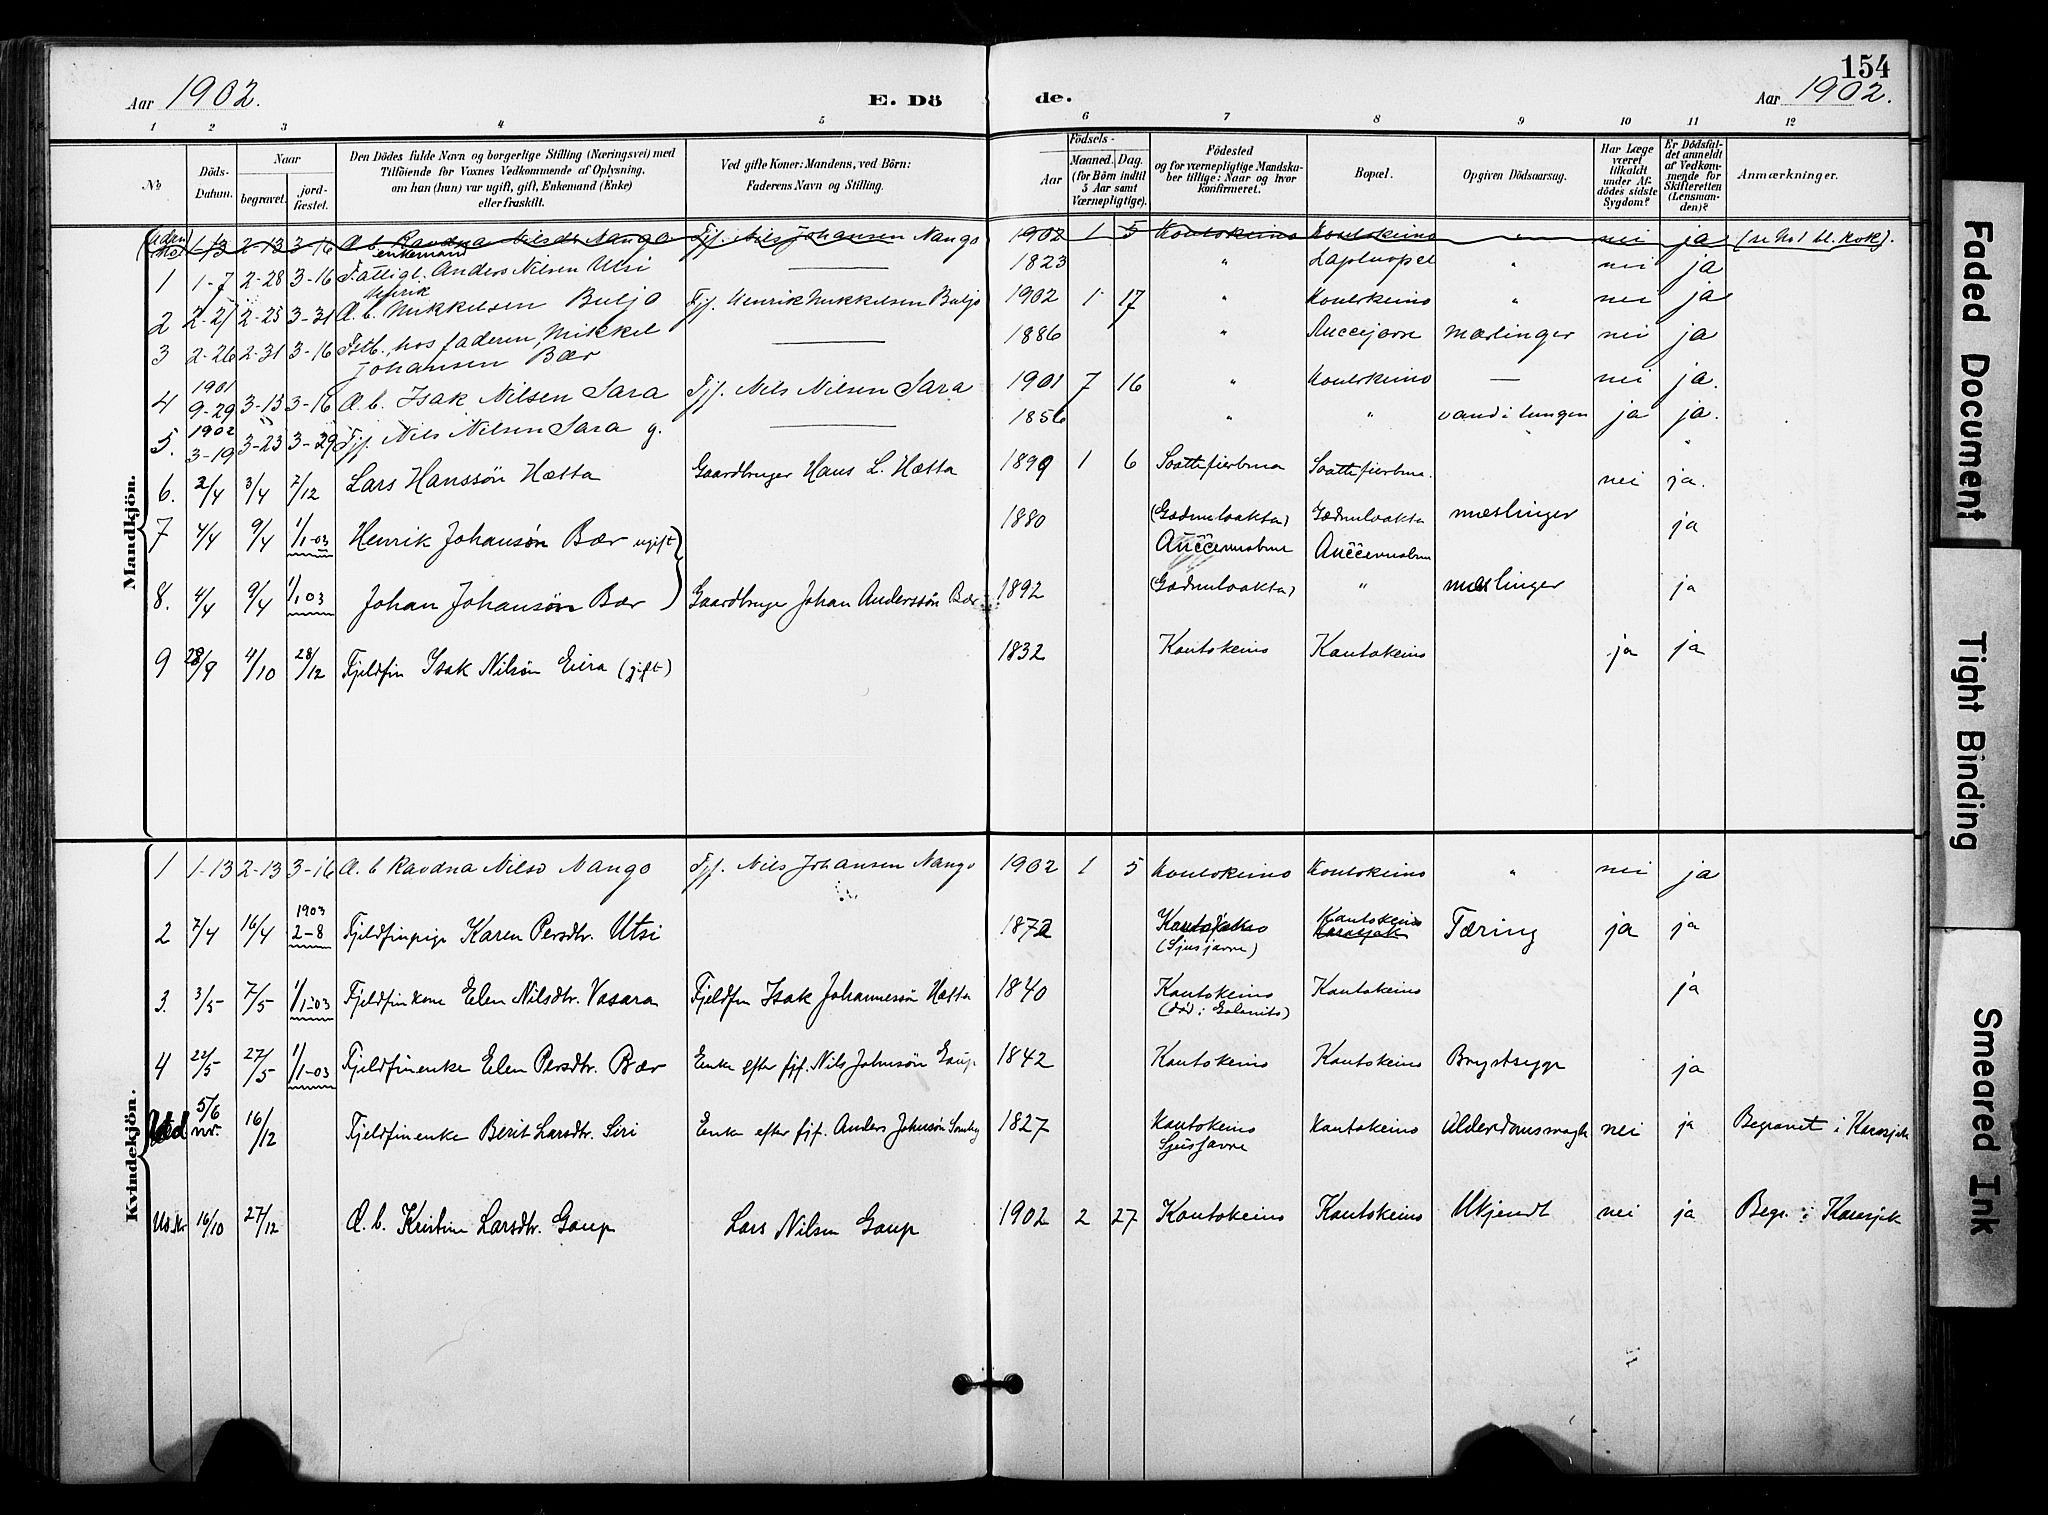 154
Aar 1902.
E. Dö
de.
Aar 1902.
1 2 3 4 5 6 7 8 9 10 11 12
No
Döds-Datum.
Naar
begravet.
jord-fæstet.
Den Dödes fulde Navn og borgerlige Stilling (Næringsvei) med
Tilföiende for Voxnes Vedkommende af Oplysning,
om han (hun) var ugift, gift, Enkemand (Enke)
eller fraskilt.
Ved gifte Koner: Mandens, ved Börn:
Faderens Navn og Stilling.
Födsels-
Aar
Maaned. Dag.
(for Börn indtil
5 Aar samt
Værnepligtige).
Födested
og for værnepligtige Mandska-
ber tillige: Naar og hvor
konfirmeret.
Bopæl.
Opgiven Dödsaarsag.
Har Læge
været
tilkaldt
under Af-
dödes sidste
Sygdom?
Er Dödsfal-
det anmeldt
af Vedkom-
mende for
Skifteretten
(Lensman-
den)?
Anmærkninger.
Mandkjön.
(uden No) 1-13 2-13 3-16 Æ. b. Ravdna Nilsdt Nango Fjf. Nils Johansen Nango 1902 1 5 Koutokeino Koutokeino " nei ja (se No 1 bl. Kvk).
enkemand
1 1-7 2-28 3-16 Fattigl. Anders Nilsen Utsi —— 1823 " " nei ja
Henrik
2 2-27 2-25 3-31 Æ. b. Mikkelsen Buljo Fjf. Henrik Mikkelsen Buljo 1902 1 17 " Koutokeino " nei ja
3 2-26 2-31 3-16 Fstb., hos faderen, Mikkel —— 1886 " Auccejavre mæslinger nei ja
Johansen Bær
1901
4 9-29 3-13 3-16 Æ. b. Isak Nilsen Sara Fjf. Nils Nilsen Sara 1901 7 16 " Koutokeino — nei ja.
1902
5. 3-19 3-23 3-29 Fjf. Nils Nilsen Sara g. —— 1856 " " vand i lungen ja ja.
6. 2/4 3/4 7/12 Lars Hanssön Hætta Gaardbruger Hans L. Hætta 1899 1 6 nei ja.
7 4/4 9/4 1/1-03 Henrik Johansön Bær ugift 1880 (Gædnuluakta) Gædnuluakta mæslinger ja
8. 4/4 9/4 1/1 03 Johan Johansön Bær Gaardbruge Johan Anderssön Bær 1892 (Gædnuluakta) " mæslinger ja
9 28/9 4/10 28/12 Fjeldfin Isak Nilsön Eira (gift) 1832 Kautokeino Kautokeino ja ja
Kvindekjön.
1 1-13 2-13 3-16 Æ. b Ravdna Nilsd Nango Fjf. Nils Johansen Nango 1902 1 5 Koutokeino Koutokeino " nei ja
1903
2 7/4 16/4 2-8 Fjeldfinpige Karen Persdtr. Utsi 1872 Kautokeino Kautokeino Karasjok Tæring ja ja
(Sjusjavre)
3. 3/5 7/5 1/1-03 Fjeldfinkone Elen Nilsdtr. Vasara Fjeldfin Isak Johannessön Hætta 1840 Kautokeino Kautokeino ja
4 22/5 27/5 1/1-03 Fjeldfinenke Elen Persdtr. Bær Enke efter fjf. Nils Johnsön Gaup 1842 Kautokeino Kautokeino Brystsyge ja
5/6 16/12 Fjeldfinenke Berit Larsdtr. Siri Enke efter fjf. Anders Johnsön 1827 Kautokeino Kautokeino Alderdomssvagh nei ja Begravet i Karasjok
Sjusjavre
Ud. Nr 16/10 27/12 Æ. b. Kristine Larsdtr. Gaup Lars Nilsen Gaup 1902 2 27 Kautokeino Kautokeino Ukjendt nei ja Begr. i Karasjok
Faded Document
Tight Binding
Smeared Ink